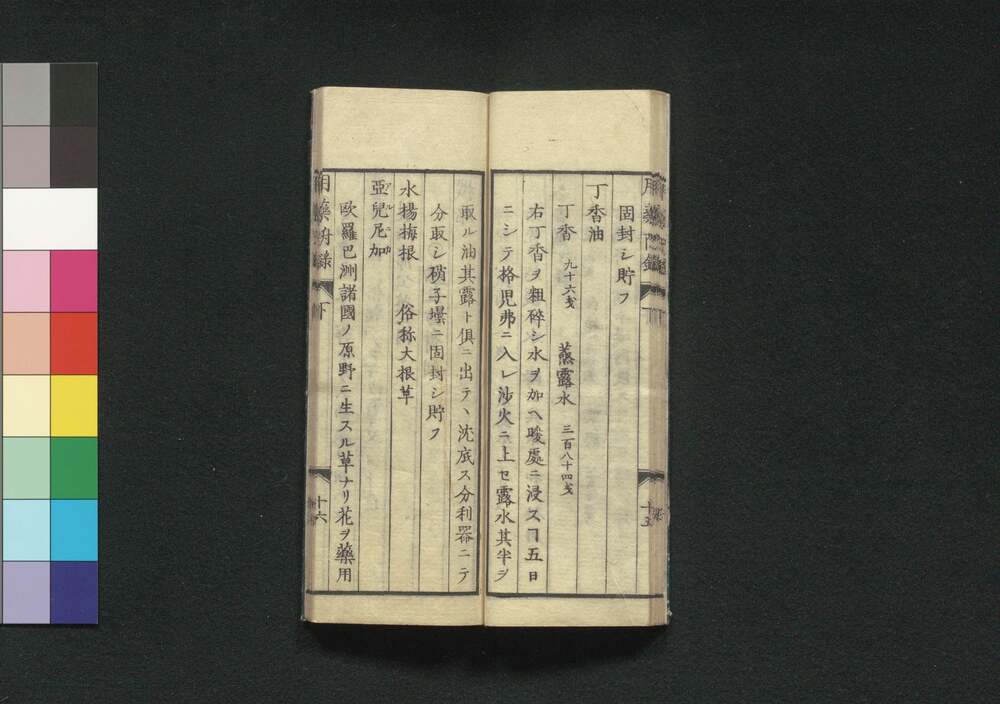 固封シ貯フ
丁香油
丁香 九十六戔 蒸露水 三百八十四戔
右丁香ヲ粗碎シ水ヲ加ヘ暖處ニ浸スヿ五日
ニシテ格児弗ニ入レ沙火ニ上セ露水其半ヲ
取ル油其露ト倶ニ出テヽ沈底ス分利器ニテ
分取シ硝子壜ニ固封シ貯フ
水楊梅根 俗称大根草
亞兒尼加
歐羅巴洲諸國ノ原野ニ生スル草ナリ花ヲ藥用
用藥附録 下 十六